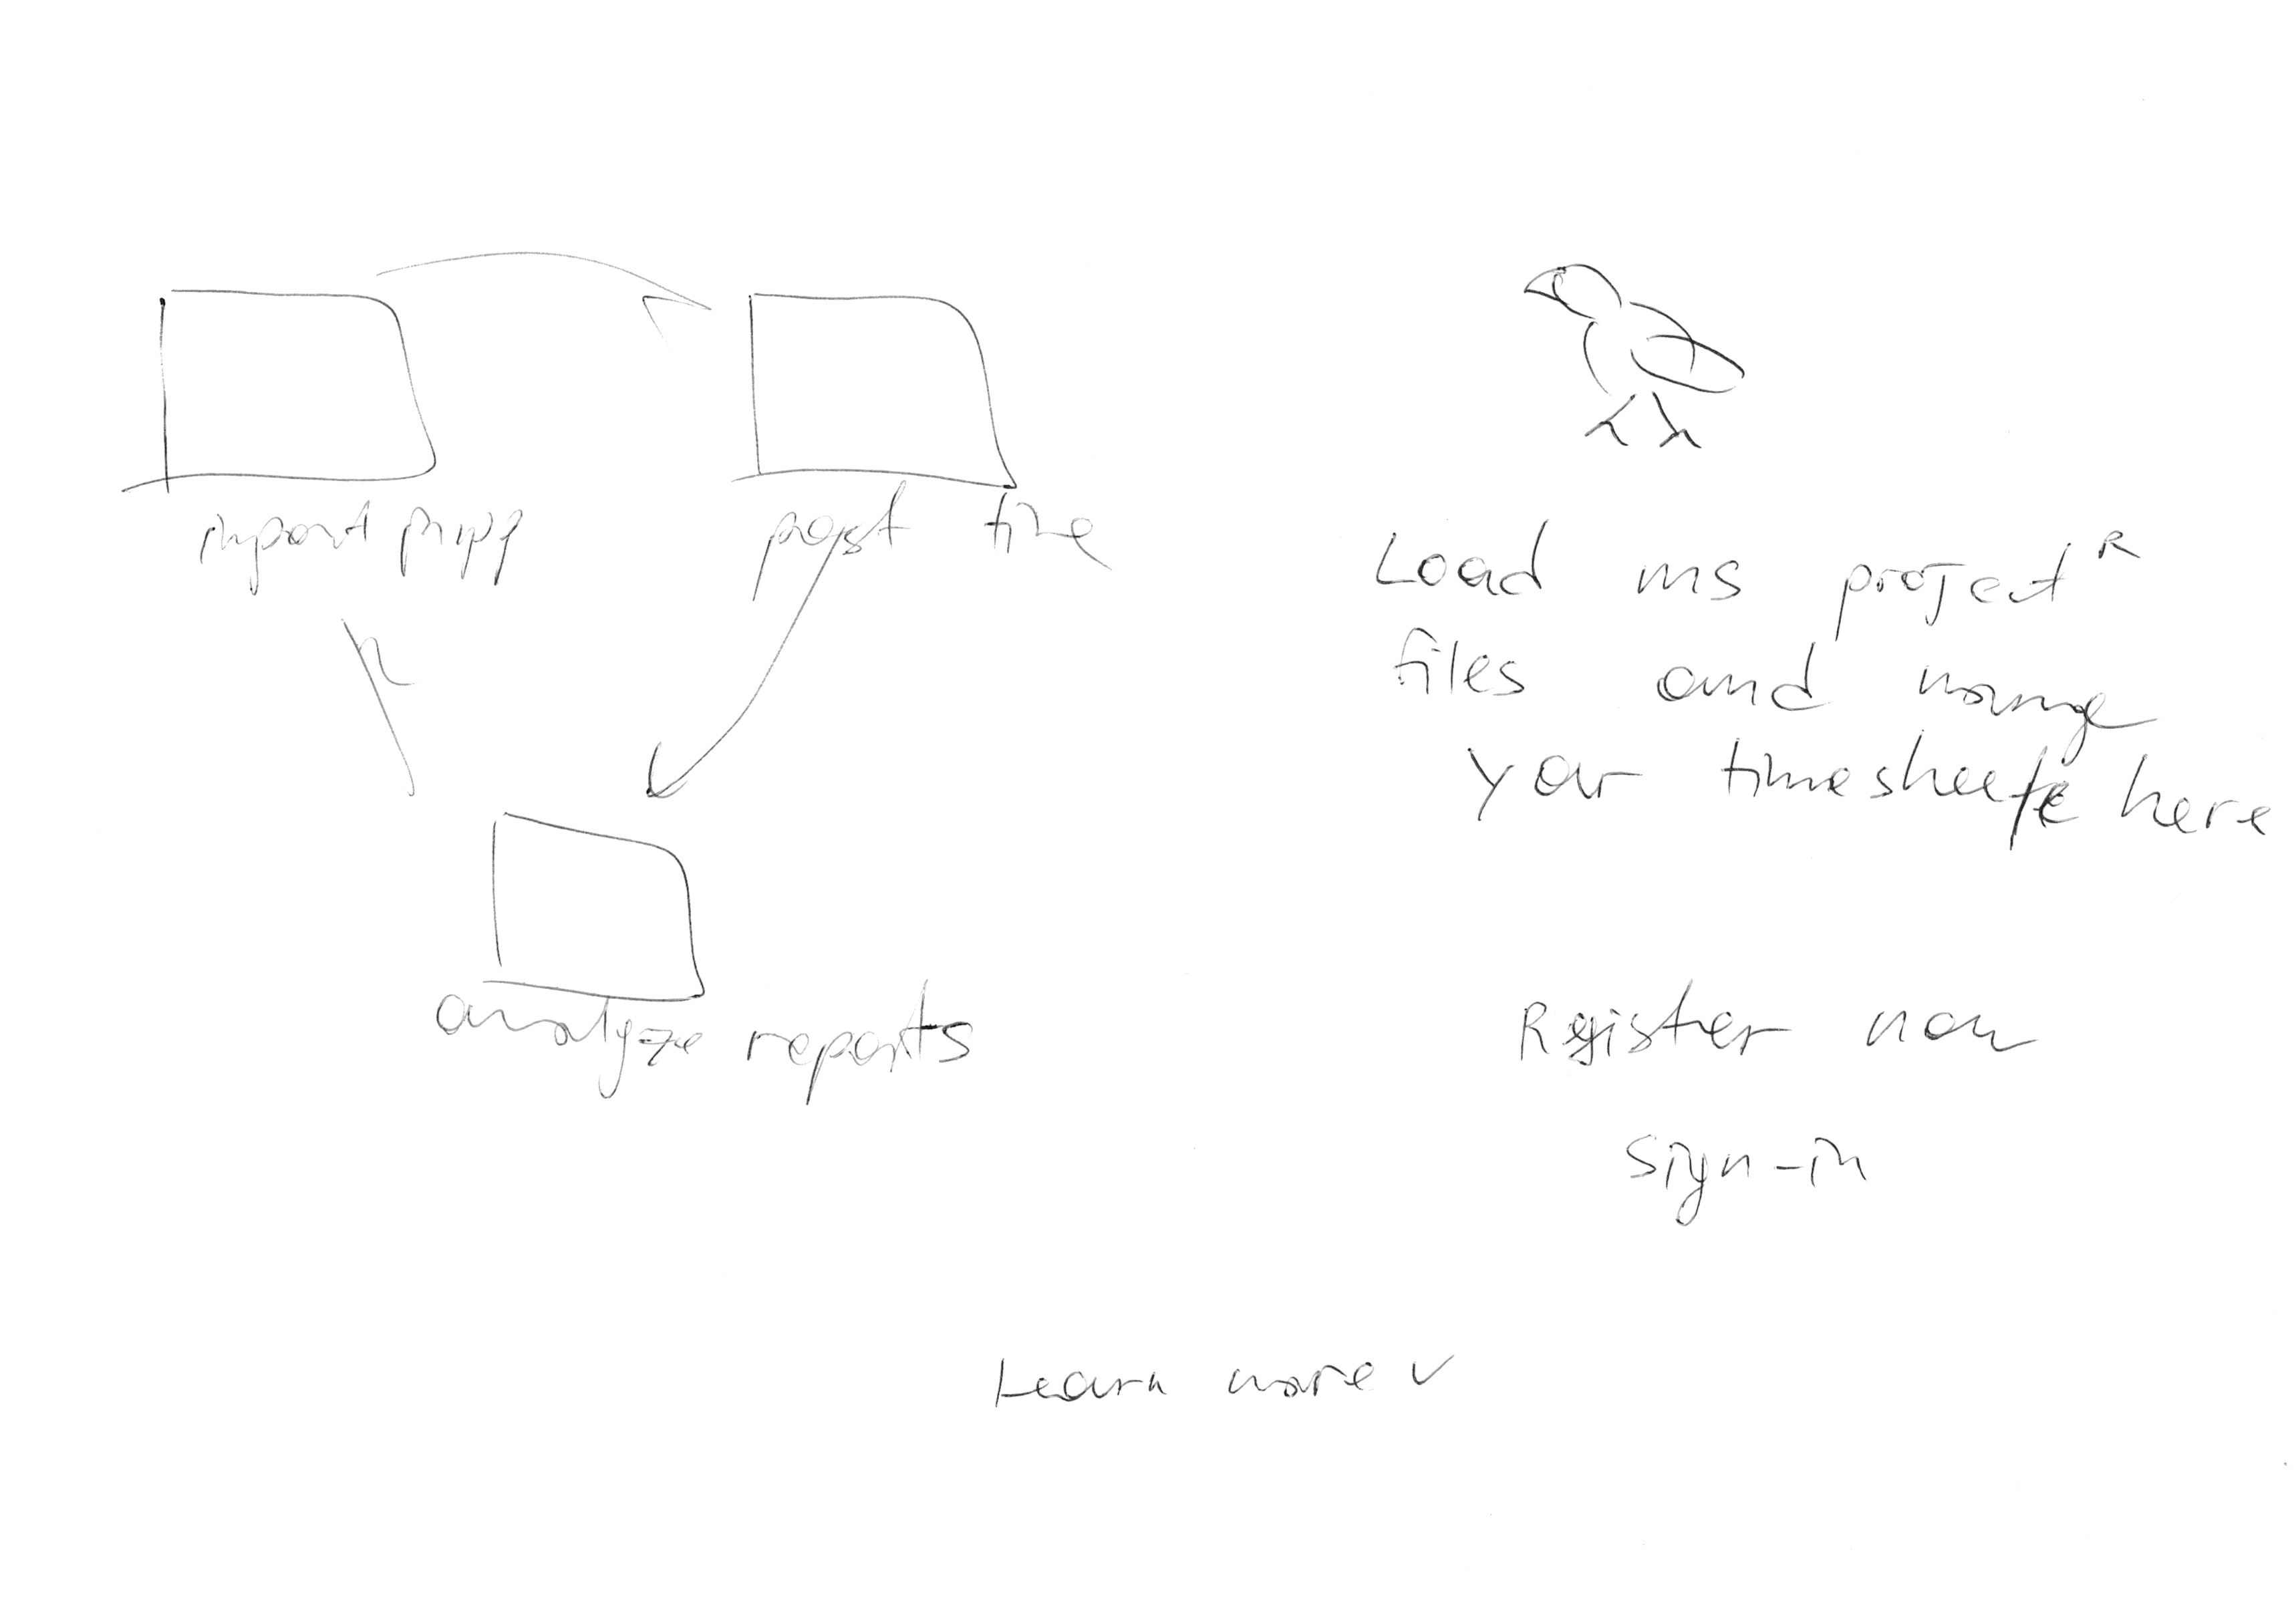 import mpp
post time
analyze reports
Load ms project R
files and manage
your timesheets here
Register now
sign-in
Learn more